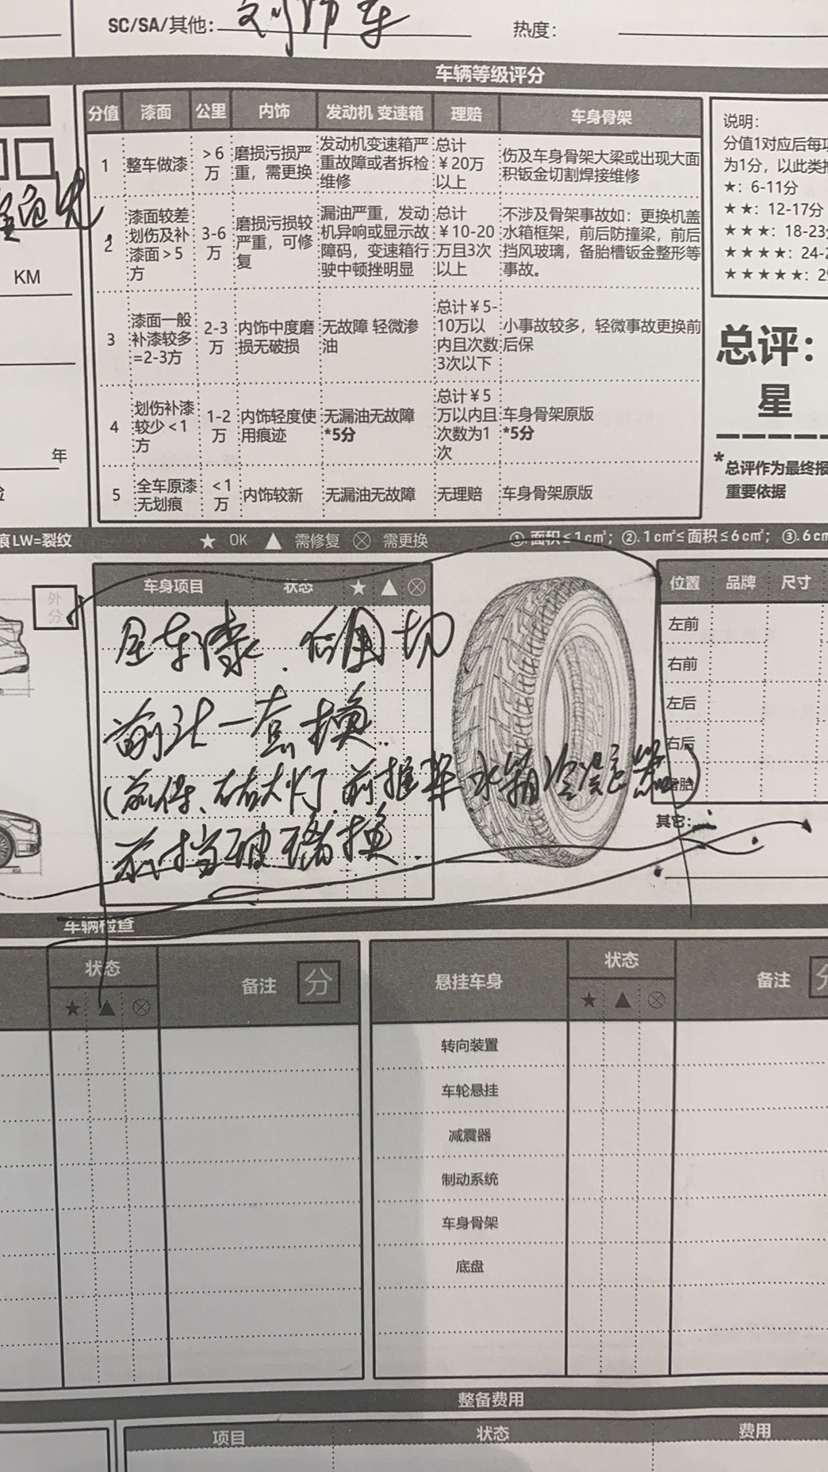 SC/SA/其他：
热度：
车辆等级评分
分值 漆面 公里 内饰 发动机 变速箱 理赔 车身骨架
1 整车做漆 >6万 磨损污损严重，需更换 发动机变速箱严重故障或者拆检维修 总计￥20万以上 伤及车身骨架大梁或出现大面积钣金切割焊接维修
2 漆面较差划伤及补漆面>5方 3-6万 磨损污损较严重，可修复 漏油严重，发动机异响或显示故障码，变速箱行驶中顿挫明显 总计￥10-20万且3次以上 不涉及骨架事故如：更换机盖水箱框架，前后防撞梁，前后挡风玻璃，备胎槽钣金整形等事故。
3 漆面一般补漆较多=2-3方 2-3万 内饰中度磨损无破损 无故障 轻微渗油 总计￥5-10万以内且次数3次以下 小事故较多，轻微事故更换前后保
4 划伤补漆较少<1方 1-2万 内饰轻度使用痕迹 无漏油无故障 *5分 总计￥5万以内且次数为1次 车身骨架原版 *5分
5 全车原漆无划痕 <1万 内饰较新 无漏油无故障 无理赔 车身骨架原版
说明：
分值1对应后每项
为1分，以此类推
★：6-11分
★★：12-17分
★★★：18-23分
★★★★：24-2
★★★★★：29
总评：
星
*总评作为最终报
重要依据
KM
年
痕LW=裂纹
★ OK ▲ 需修复 ⊗ 需更换
①.面积≤1c㎡；②.1c㎡≤面积≤6c㎡；③.6c㎡
外分
车身项目 状态 ★ ▲ ⊗
全车漆、右后切
前计一套换
(前保、右大灯、前框架 水箱 冷凝器)
前挡玻璃换.
位置 品牌 尺寸
左前
右前
左后
右后
备胎
其它：
车辆检查
状态 备注 分
★ ▲ ⊗
悬挂车身 状态 备注 分
★ ▲ ⊗
转向装置
车轮悬挂
减震器
制动系统
车身骨架
底盘
整备费用
项目 状态 费用